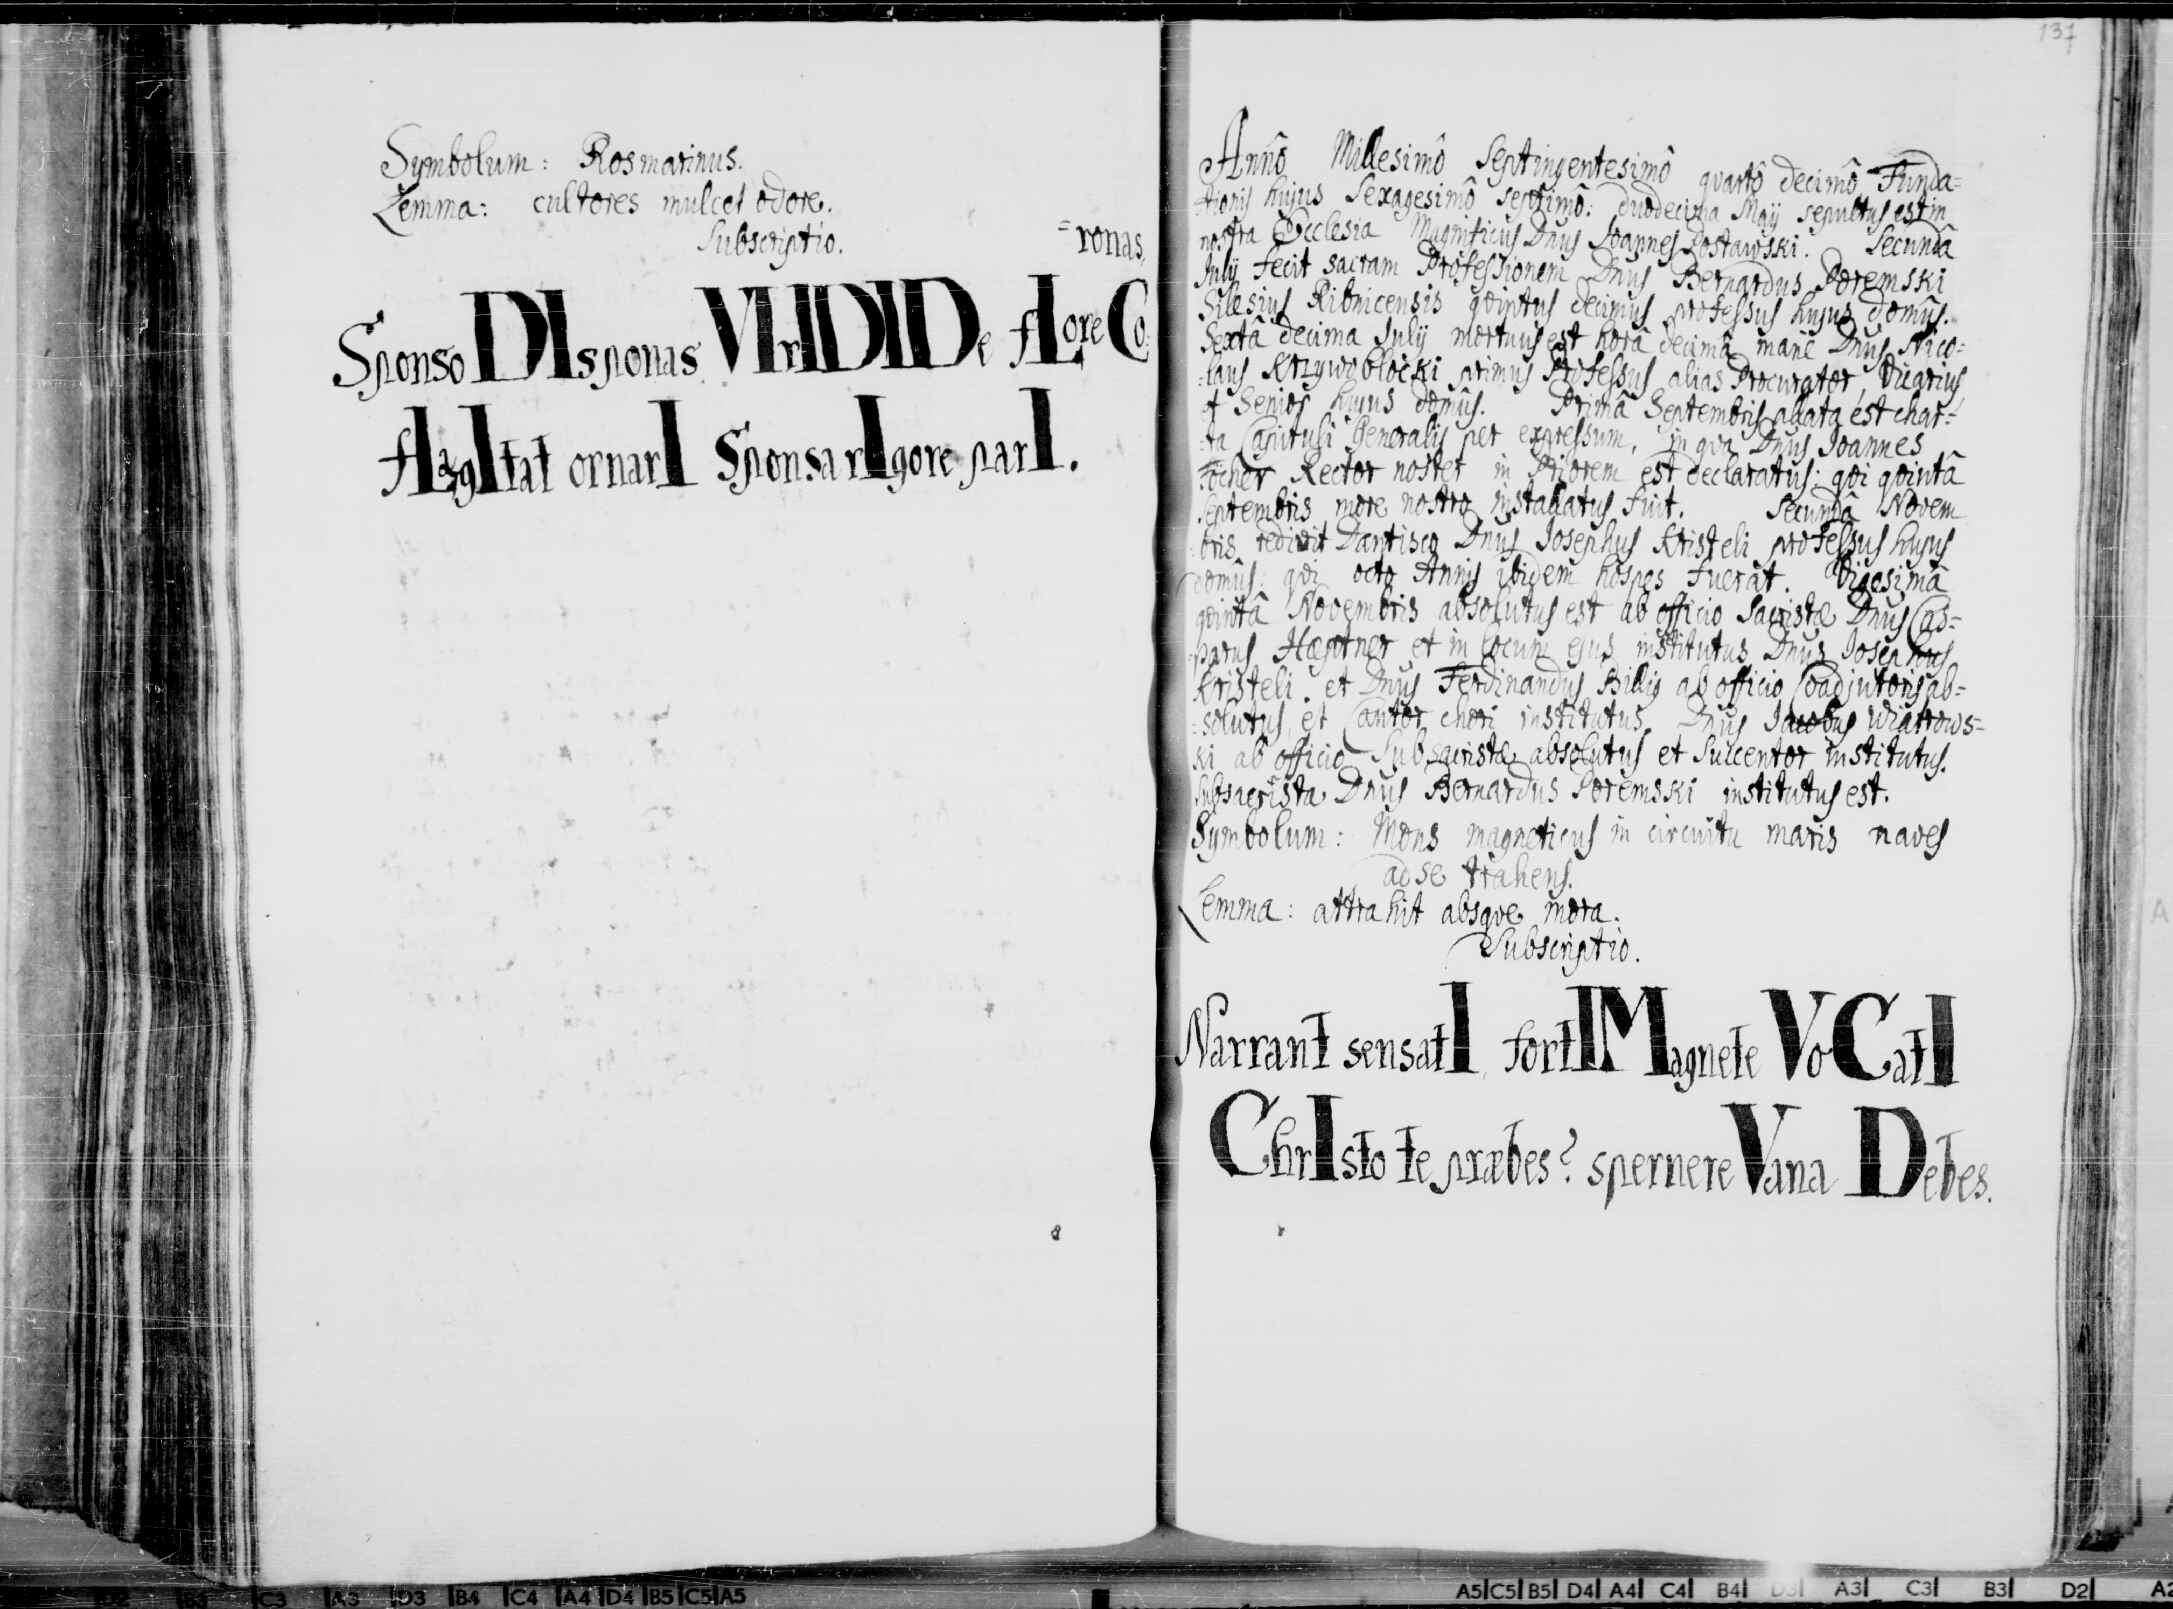 Symbolum: Rosmarinus.
Lemma: cultores mulcet odore.
Subscriptio.
=ronas,
Sponso DIsponas VIrIDI De fLore Co:
fLagItat ornarI Sponsa rIgore parI.
137
Annô Millesimô Septingentesimô qvartô decimô, Funda=
tionis hujus Sexagesimô septimô: duodecima Maij sepultus est in
nostra Ecclesia Magnificus Dnus Joannes Postawski. Secundâ
Julij fecit sacram Professionem Dnus Bernardus Poremski
Silesius Ribnicensis qvintus decimus professus hujus domûs.
Sextâ decima Julij mortuus est horâ decimâ mane Dnus Nico=
=laus Krzywobłocki primus Professus alias Procurator, Vicarius
et Senior hujus domûs. Primâ Septembris allata est char=
=ta Capituli Generalis per expressum, in qva Dnus Joannes
Focher Rector noster in Priorem est declaratus: qvi qvintâ
Septembris more nostro installatus fuit. Secundâ Novem
bris redivit Dantisco Dnus Josephus Kristeli professus hujus
domûs: qvi octo Annis ibidem hospes fuerat. Vigesimâ
qvintâ Novembris absolutus est ab officio Sacristæ Dnus Cas=
=parus Hæptner et in locum ejus institutus Dnus Josephus
Kristeli. et Dnus Ferdinandus Billig ab officio Coadjutoris ab=
=solutus, et Cantor chori institutus. Dnus Jacobus Wiatrows=
ki ab officio Subsacristæ absolutus et Succentor institutus.
Subsacrista Dnus Bernardus Poremski institutus est.
Symbolum: Mons magneticus in circuitu maris naves
ad se trahens.
Lemma: attrahit absqve mora.
Subscriptio.
Narrant sensatI fortI Magnete VoCatI
ChrIsto te præbes? spernere Vana Debes.
C3 A3 D3 B4 C4 A4 D4 B5 C5 A5
A5 C5 B5 D4 A4 C4 B4 D3 A3 C3 B3 D2 A2